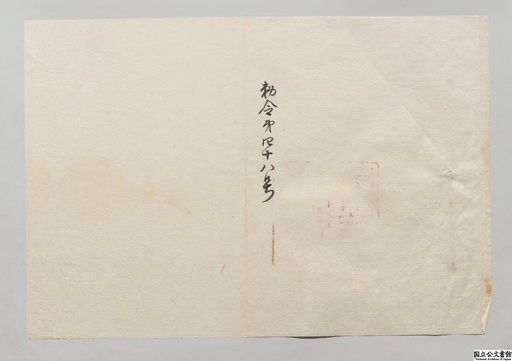 勅令第四十八号
国立公文書館
National Archives of Japan